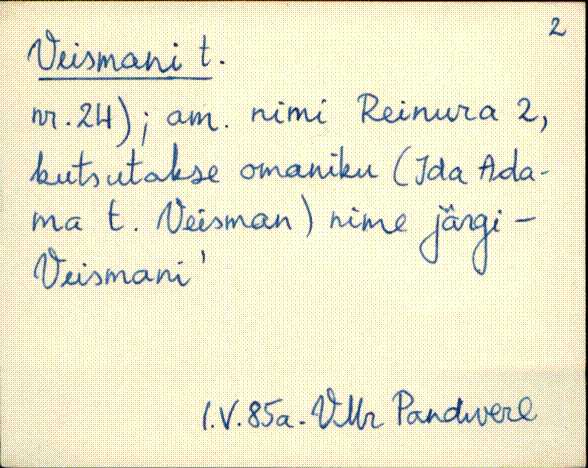 2
Veismani t.
nr. 24); am. nimi Reinura 2,
kutsutakse omaniku (Ida Ada-
ma t. Veisman) nime järgi –
Veismani'
I.V.85a. VMr Pandivere